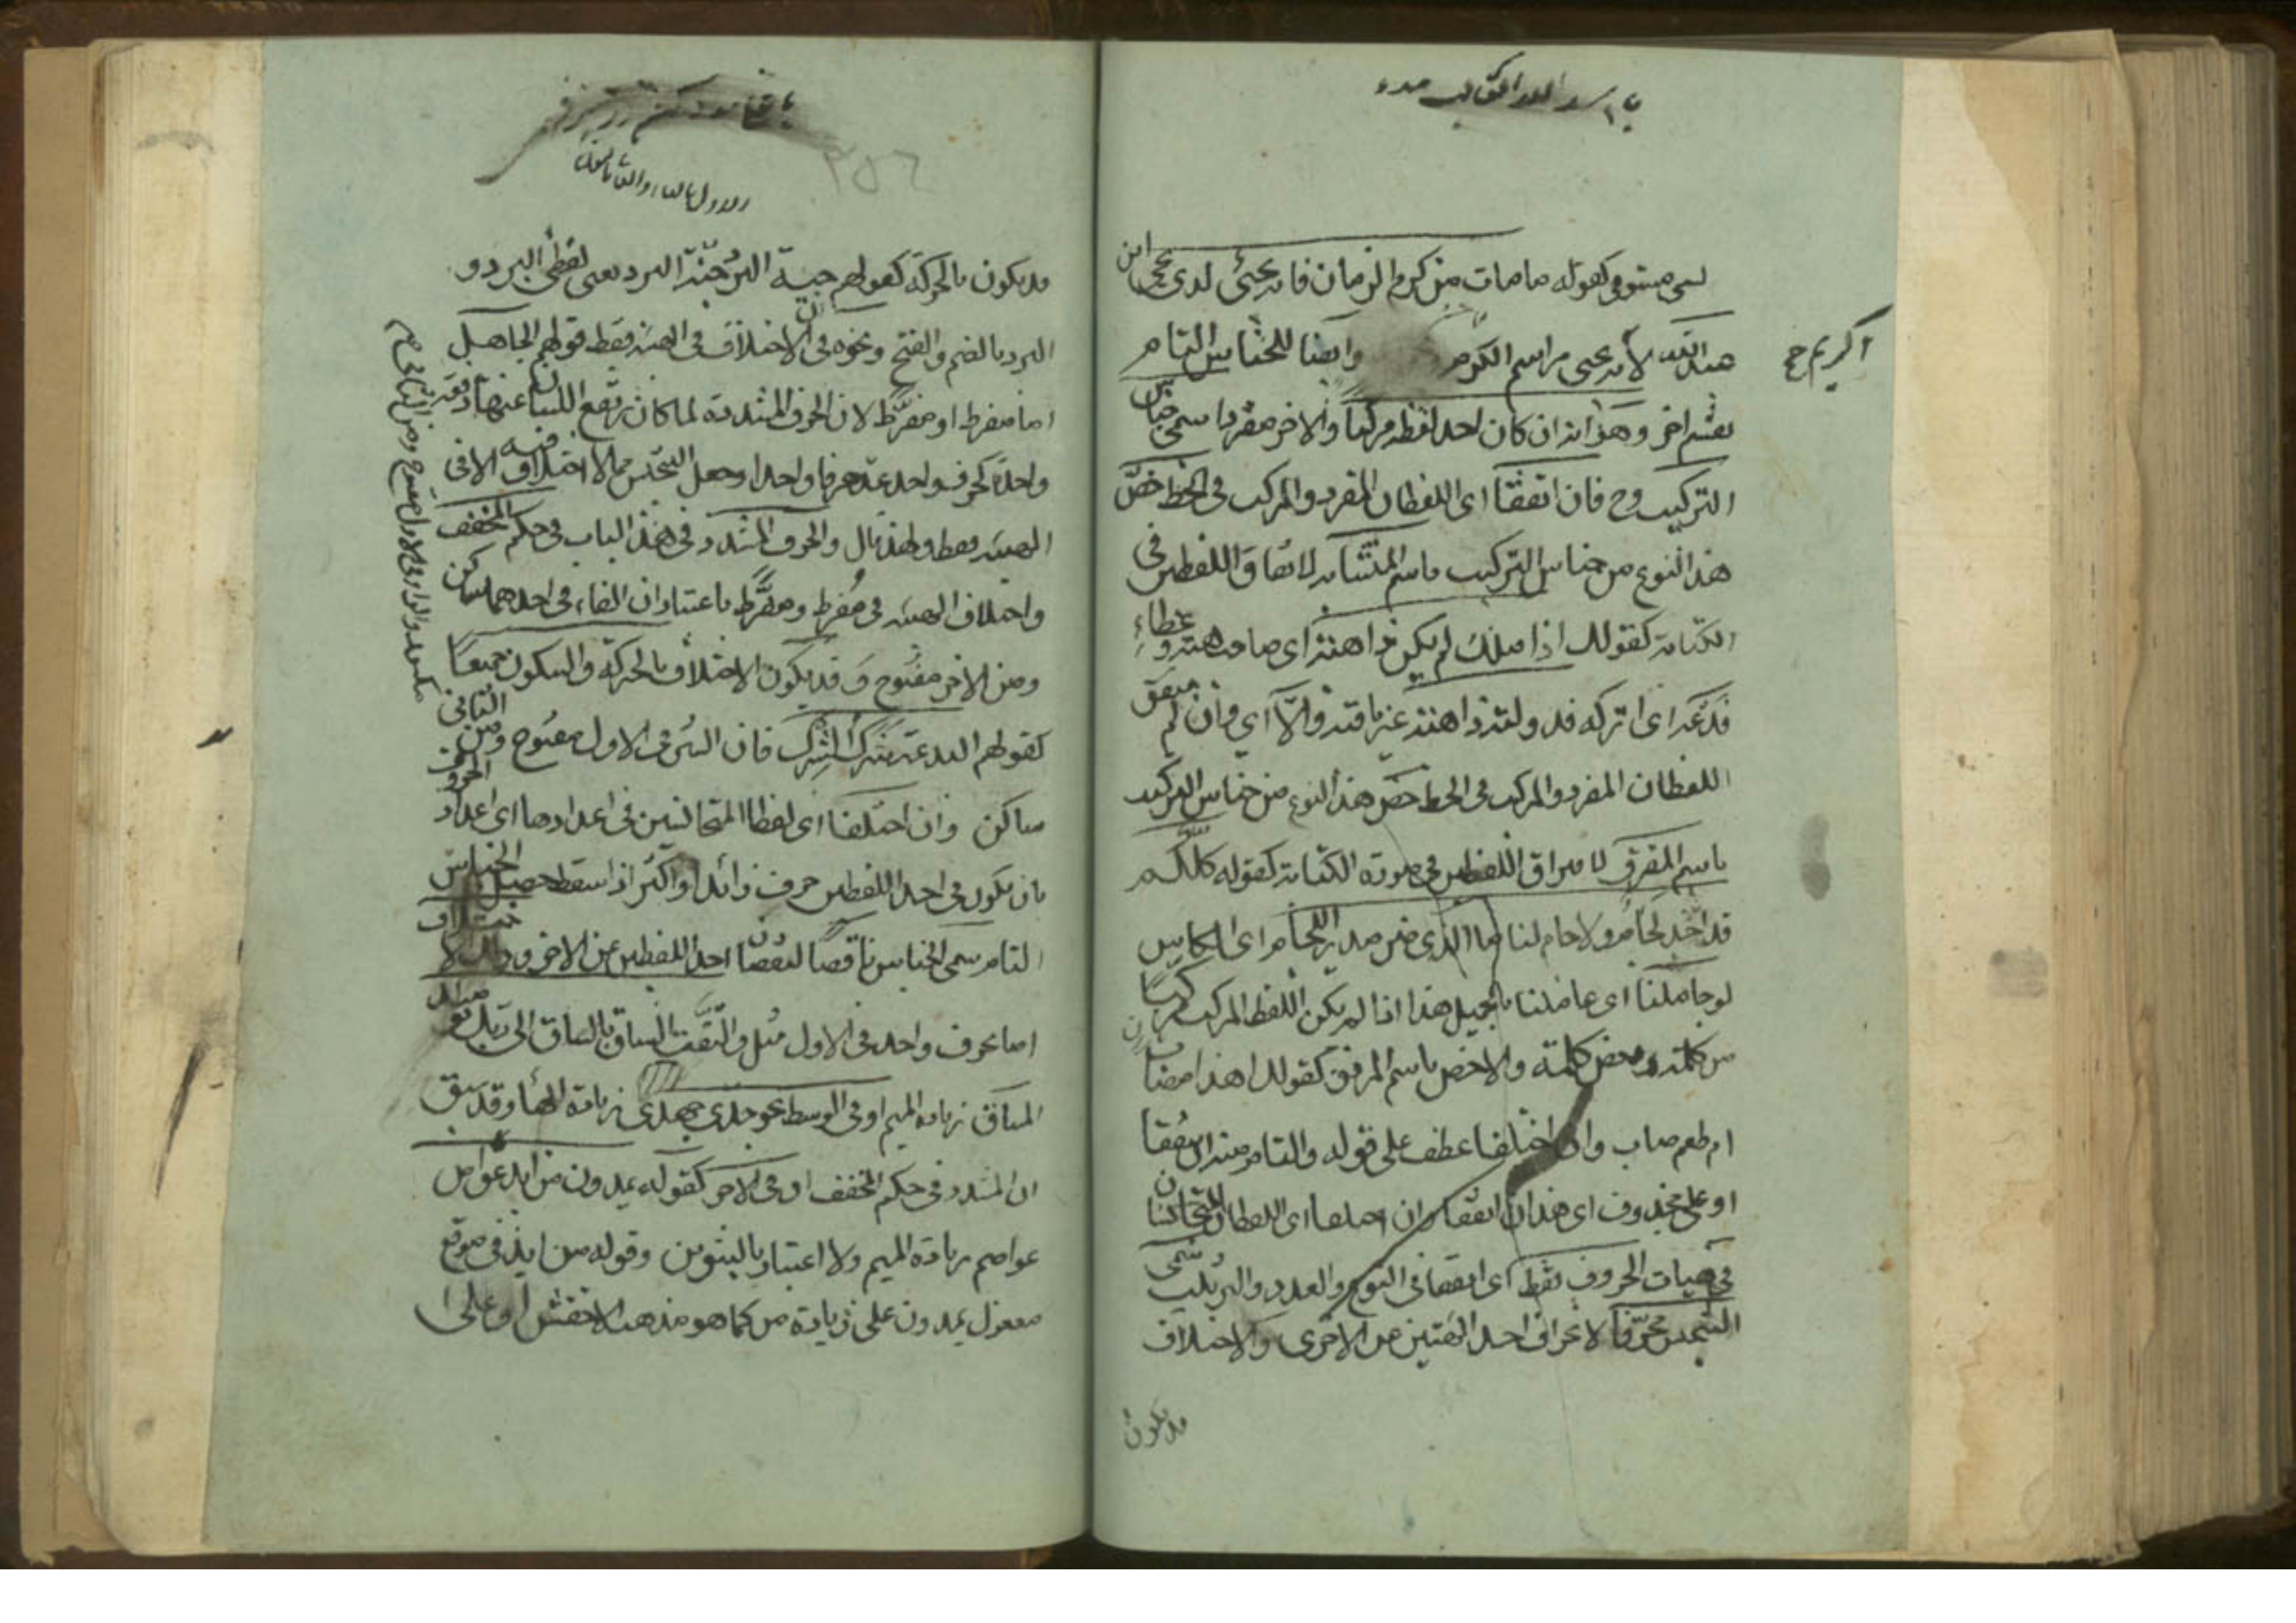 يسمى مستوفى كقوله ما مات من كرم الزمان فانه يحيى لدى يحيى ابن
عبد الله لانه يحيى مراسم الكرم وايضا للجناس التام
اكريم ح
تقسيم اخر وهو انه ان كان احد لفظيه مركبا والاخر مفردا سمى جناس
التركيب وح فان اتفقا اى اللفظان المفرد والمركب فى الخط خص
هذا النوع من جناس التركيب باسم المتشابه لاتفاق اللفظين فى
الكتابة كقوله اذا ملك لم يكن ذا هبة اى صاحب هبة وعطاء
فدعه اى اتركه فدولته ذاهبة غير باقية والا اى وان لم يتفق
اللفظان المفرد والمركب فى الخط خص هذا النوع من جناس التركيب
باسم المفروق لافتراق اللفظين فى صورة الكتابة كقوله كلكم
قد اخذ الجام ولا جام لنا ما الذى ضر مدير الجام اى الكاس
لو جاملنا اى عاملنا بالجميل هذا اذا لم يكن اللفظ المركب مركبا
من كلمة وبعض كلمة والا خص باسم المرفو كقولك اهذا مصاب
ام طعم صاب وان اختلفا عطف على قوله والتام منه ان يتفقا
او على محذوف اى هذا ان اتفقا وان اختلفا اى اللفظان المتجانسان
فى هيات الحروف فقط اى اتفقا فى النوع والعدد والترتيب سمى
التجنيس محرفا لانحراف احد الهيئتين عن الاخرى والاختلاف
قد يكون
٢٥٦
قد يكون بالحركة كقولهم جبة البرد جنة البرد يعنى لفظى البرد و
البرد بالضم والفتح ونحوه فى ان الاختلاف فى الهيئة فقط قولهم الجاهل
اما مفرط او مفرط لان الحرف المشددة لما كان يرتفع اللسان عنها دفعة
واحدة كحرف واحد عد حرفا واحدا وجعل التجنيس مما لا اختلاف فيه الا فى
الهيئة فقط ولهذا قال والحرف المشدد فى هذا الباب فى حكم المخفف
واختلاف الهيئة فى مفرط ومفرط باعتبار ان الفاء فى احدهما ساكن
ومن الاخر مفتوح وقد يكون الاختلاف بالحركة والسكون جميعا
كقولهم البدعة شرك الشرك فان الشين فى الاول مفتوح ومن الثانى
ساكن وان اختلفا اى لفظا المتجانسين فى اعدادها اى اعداد الحروف
بان يكون فى احد اللفظين حرف زائد او اكثر اذا اسقط حصل الجناس
التام سمى الجناس ناقصا لنقصان احد اللفظين عن الاخر وذلك الاختلاف
اما بحرف واحد فى الاول مثل والتفت الساق بالساق الى ربك يومئذ
المساق بزيادة الميم او فى الوسط نحو جدى جهدى بزيادة الهاء وقد سبق
ان المشدد فى حكم المخفف او فى الاخر كقوله يمدون من ايد عواص
عواصم بزيادة الميم ولا اعتبار بالتنوين وقوله من ايد فى موقع
مفعول يمدون على زيادة من كما هو مذهب الاخفش او على ا